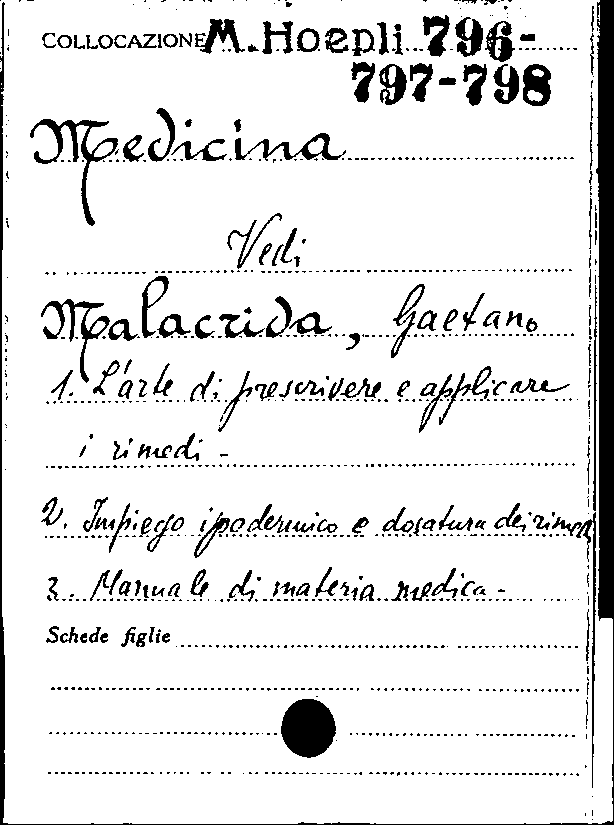 COLLOCAZIONE M. Hoepli 796-
797-798
Medicina
Vedi
Malacrida, Gaetano
1. L'arte di prescrivere e applicare
i rimedi -
2. Impiego ipodermico e dosatura dei rimedi
3. Manuale di materia medica -
Schede figlie